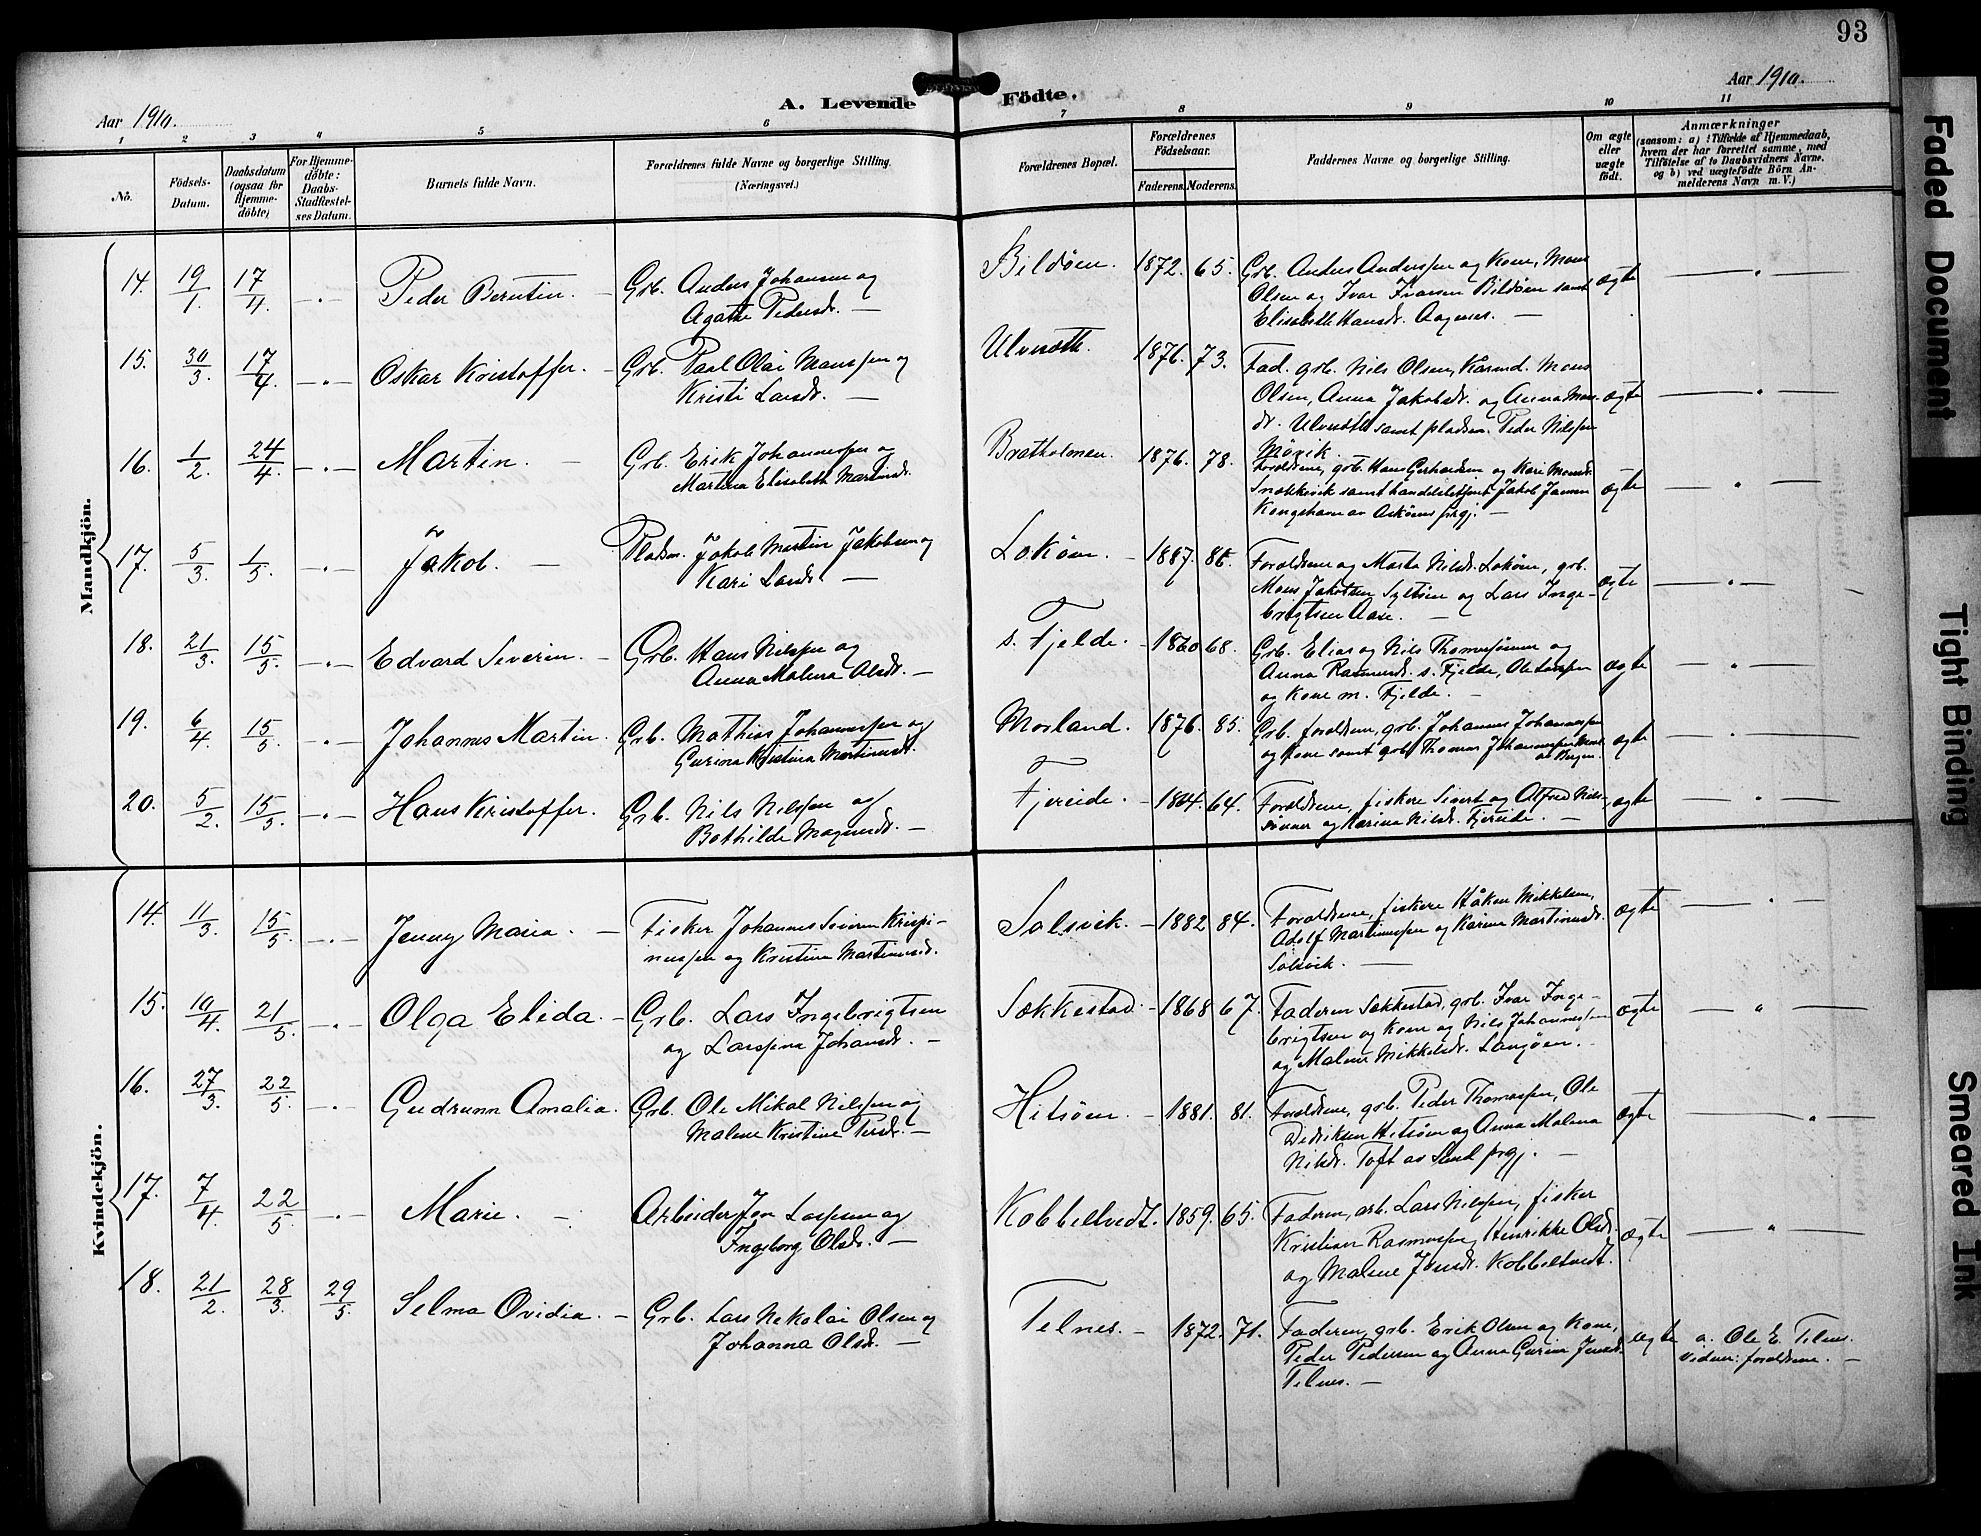 93
Aar 1910.
A. Levende Födte.
Aar 1910.
1 2 3 4 5 6 7 8 9 10 11
No.
Födsels-Datum.
Daabsdatum (ogsaa for Hjemme-döbte)
For Hjemme-döbte: Daabs-Stadfæstel-ses Datum.
Barnets fulde Navn.
Forældrenes fulde Navne og borgerlige Stilling.
(Næringsvei.)
Forældrenes Bopæl.
Forældrenes Födselsaar.
Faderens. Moderens.
Faddernes Navne og borgerlige Stilling.
Om ægte eller uægte födt.
Anmærkninger
(saasom: a) i Tilfælde af Hjemmedaab,
hvem der har forrettet samme, med
Tilföielse af to Daabsvidners Navne.
og b) ved uægtefödte Börn An-
melderens Navn m. V.)
Mandkjön.
14. 19/1. 17/4. Peder Berntin. Grb. Anders Johansen og Bildöen. 1872. 65. Grb. Anders Anderssen og Kone, Mons
Agathe Pedersdr. Olsen og Ivar Ivarsen Bildöen samt ægte
Elisabeth Hansdr. Aagenes.
15. 30/3. 17/4. Oskar Kristoffer. Grb. Paul Olai Monssen og Ulvesæth. 1876. 73. Fad. grb. Nils Olsen, Mons
Kristi Larsdr. Olsen, Anna Jakobsdr. og Anna Mons- ægte
dr. Ulvesæth samt pladsm. Peder Nilssen
Mövik.
16. 1/2. 24/4. Martin. Grb. Erik Johannessen og Bratholmen. 1876. 78. Forældrene, grb. Hans Gerhardsen og Kari Monsdr.
Martha Elisabeth Martinsdr. Snekkevik samt handelsbetjent Jakob Jansen ægte
Kongshavn av Asköens prgj.
17. 5/3. 1/5. Jakob. Pladsm. Jakob Martin Jakobsen og Loköen. 1887. 86. Forældrene og Marta Nilsdr. Loköen, grb.
Kari Larsdr. Mons Jakobsen Syltöen og Lars Inge- ægte
brigtsen Aase.
18. 21/3. 15/5. Edvard Severin. Grb. Hans Nilssen og s. Fjelde. 1860 68. Grb. Elias og Nils Thomassönner og
Anna Malena Olsdr. Anna Rasmusdr. s. Fjelde, Ole Larssen ægte
og Kone m. Fjelde.
19. 6/4. 15/5. Johannes Martin. Grb. Mathias Johannessen og Morland. 1876. 85. Grb. forældrene, grb. Johannes Johannessen
Gurina Kristina Martinusd. og Kone samt grb. Thomas Johannessen ægte
av Bergen.
20. 5/2. 15/5. Hans Kristoffer. Grb. Nils Nilssen og Fjereide. 1864. 64. Forældrene, fiskere Sivert og Alfred Nils- ægte
Bothilde Magnusdr. sönner og Karina Nilsdr. Fjereide.
Kvindekjön.
14. 11/3. 15/5. Jenny Maria. Fisker Johannes Severin Krispi- Solsvik. 1882 84. Forældrene, fiskere Håkon Mikkelsen,
nussen og Kristine Martinusd. Adolf Martinussen og Karine Martinusdr. ægte
Solsvik.
15. 10/4. 21/5. Olga Elida. Grb. Lars Ingebrigtsen Sækkestad. 1868 67. Faderen Sekkestad, grb. Ivar Inge- ægte
og Larsina Johansdr. brigtsen og Kone og Nils Johannessen
og Malene Mikkelsdr. Langöen.
16. 27/3. 22/5. Gudrunn Amalia. Grb. Ole Mikal Nilssen og Hitsöen. 1881. 81. Forældrene, grb. Peder Thomassen, Ole
Malene Kristine Persdr. Didriksen Hitsöen og Anna Malena ægte
Nilsdr. Toft av Sund prgj.
17. 7/4. 22/5. Marie. Arbeider Jon Larssen og Kobbeltvedt. 1859. 65. Faderen, arb. Lars Nilssen, fisker
Ingeborg Olsdr. Kristian Rasmussen, Henrikke Olsdr. ægte
og Malene Jonsdr. Kobbeltvedt.
18. 21/2. 28/3. 29/5. Selma Ovidia. Grb. Lars Nikolai Olsen og Telnes. 1872. 71. Faderen, grb. Erik Olsen og Kone, ægte a. Ole E. Telnes.
Johanna Olsdr. Peder Pedersen og Anna Gurine Jensdr. vidner: forældrene.
Telnes.
Faded Document
Tight Binding
Smeared Ink